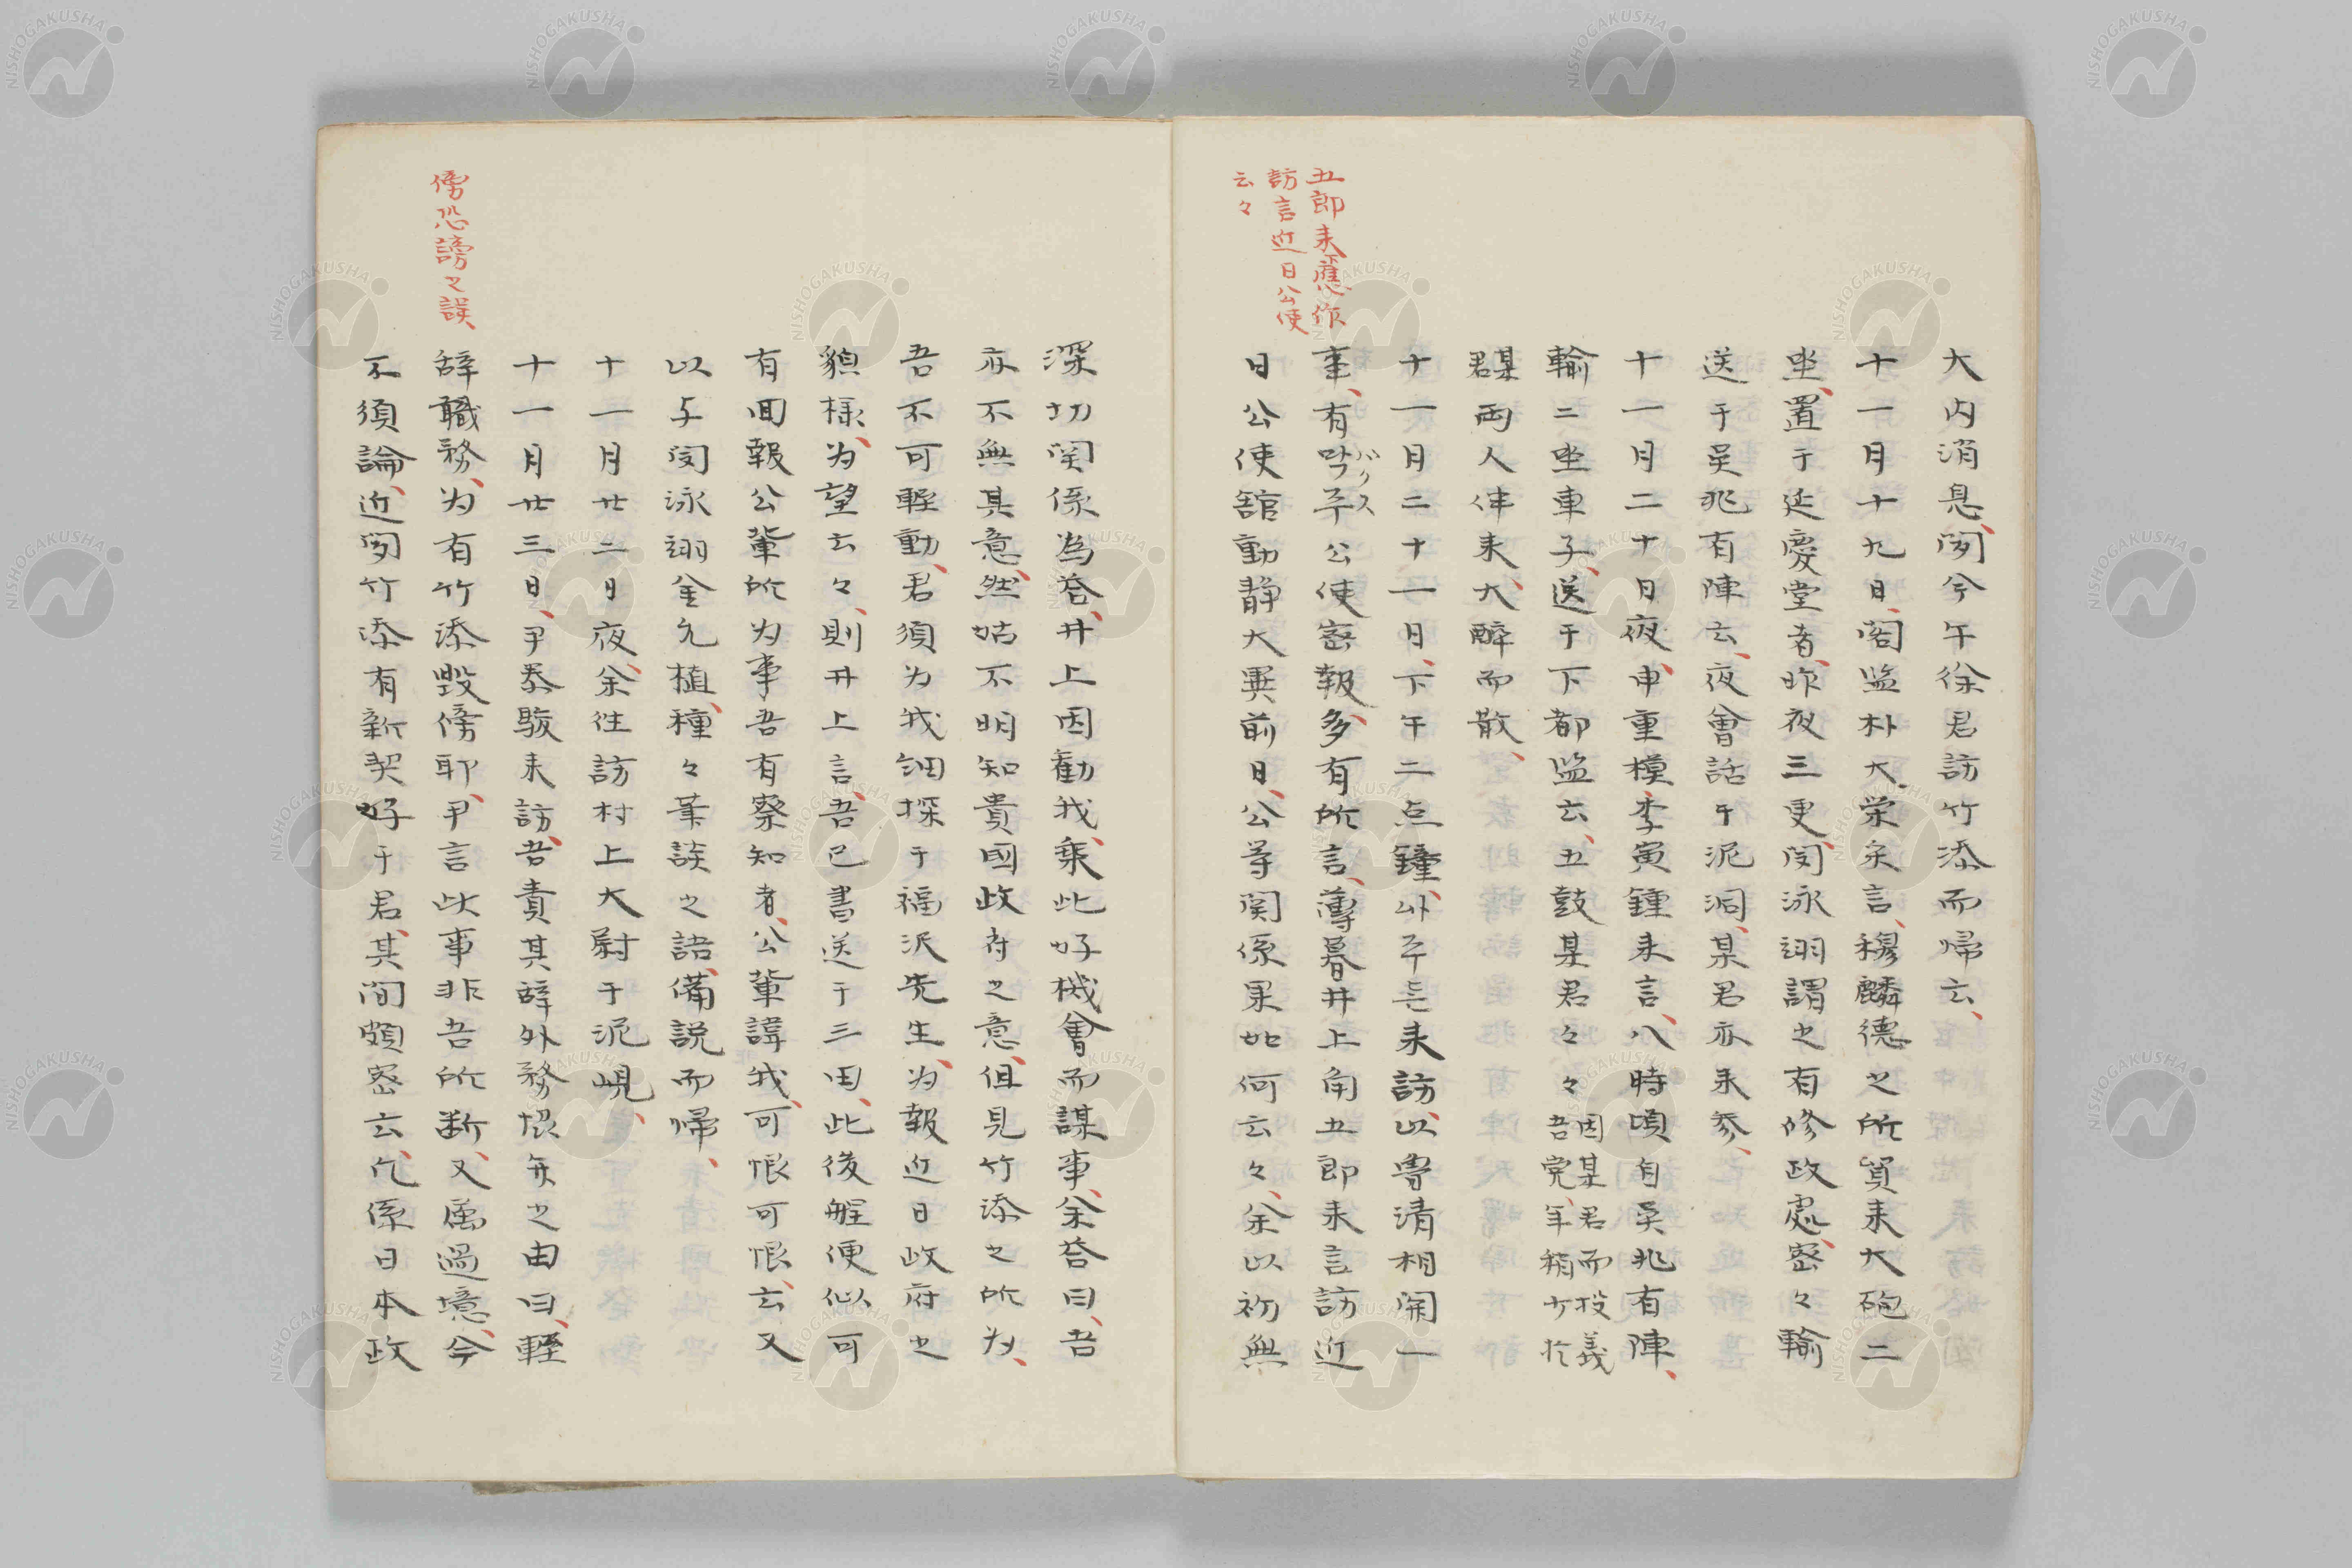 大内消息、閔今午徐君訪竹添而帰云、
十一月十九日、閣監朴大栄矣言、穆麟德之所買来大砲二
坐、置于延慶堂者、昨夜三更、閔泳翊謂之有修政處、密々輸
送于吴兆有陣云、夜會話于泥洞、某君亦来参、
十一月二十日夜、申重模、李寅鍾来言、八時頃自吴兆有陣、
輸二坐車子、送于下都監云、五鼓某君々々
因某君而投義
吾党、年稍少於
君某両人伴来、大醉而散、
十一月二十一月、下午二点鐘、卟주듄来訪、以専清相関一
事、有막주公使密報、多有所言、薄暮井上角五郎来言訪近
バクス
日公使舘動静大異前日、公等関係果如何云々、余以初無
五郎来應作
訪言近日公使
云々
深切関係為荅、井上因勸我、乗此好機會而謀事、余荅曰、吾
亦不無其意、然姑不明知貴國政府之意、但見竹添之所为、
吾不可軽動、君須为我細探于福沢先生、为報近日政府之
貌様、为望云々、則井上言、吾已書送于三田、此後艇便似可
有回報公輩所为事吾有察知者、公輩諱我、可恨可恨云、又
以与閔泳翊金允植、種々業談之語、備説而帰、
十一月廿二日夜、余往訪村上大尉于泥峴、
十一月廿三日、尹泰駿来訪、吾責其辞外務協弁之由曰、軽
辞職務、为有竹添毀傍耶、尹言此事非吾所断、又属過境、今
不須論、近聞竹添有新契好于君、其間頗密云、凢係日本政
傍恐謗之誤、
NISHOGAKUSHA